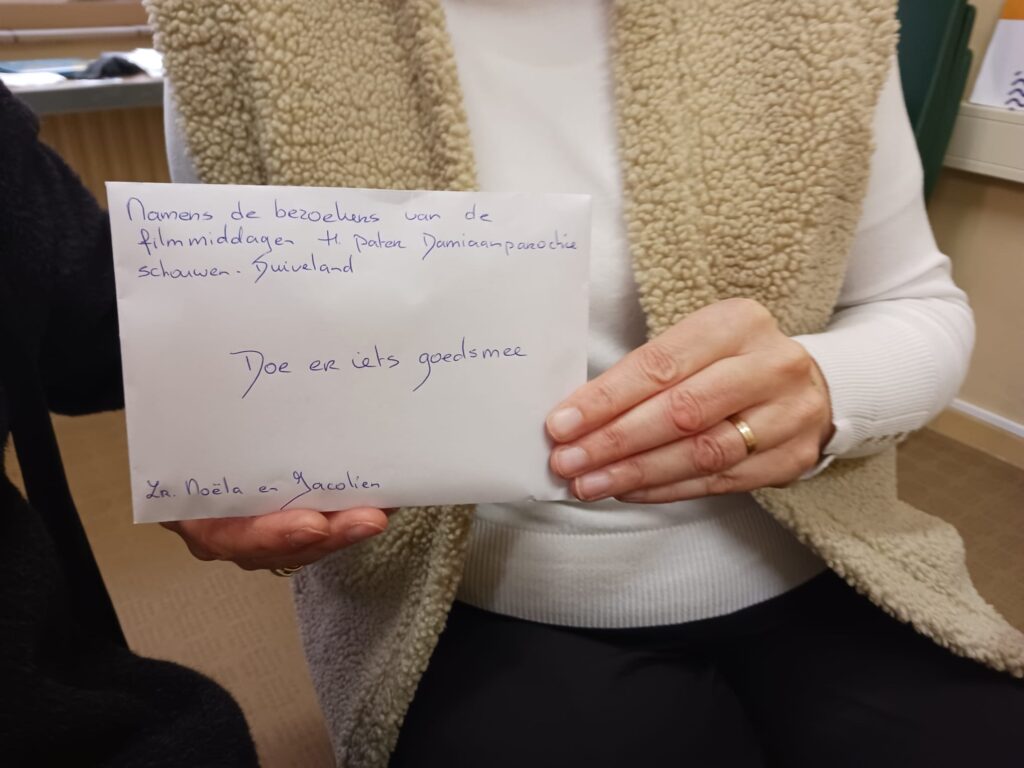 Namens de bezoekers van de
filmmiddagen H. pater Damiaanparochie
schouwen-Duiveland
Doe er iets goedsmee
Zr. Noëla en Jacolien